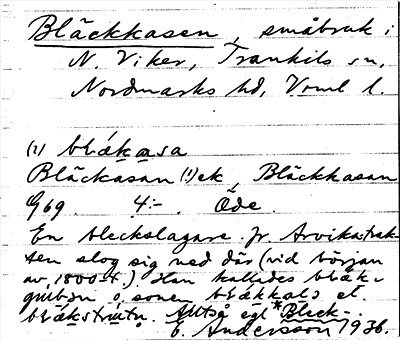 Bläckkasen, småbruk i
N. Viker, Trankils sn,
Nordmarks hd, Vrml l.
(1) blækasa
Bläckasan (1) ek, Bläckkasan
G69. 4:-. Öde.
En bleckslagare fr Arvikatrak-
ten slog sig ned där (vid början
av 1800-t.) Han kallades blæk-
gubən o, sonen blækkalə el.
Alltså egl *Bleck-.
E. Andersson 1936.